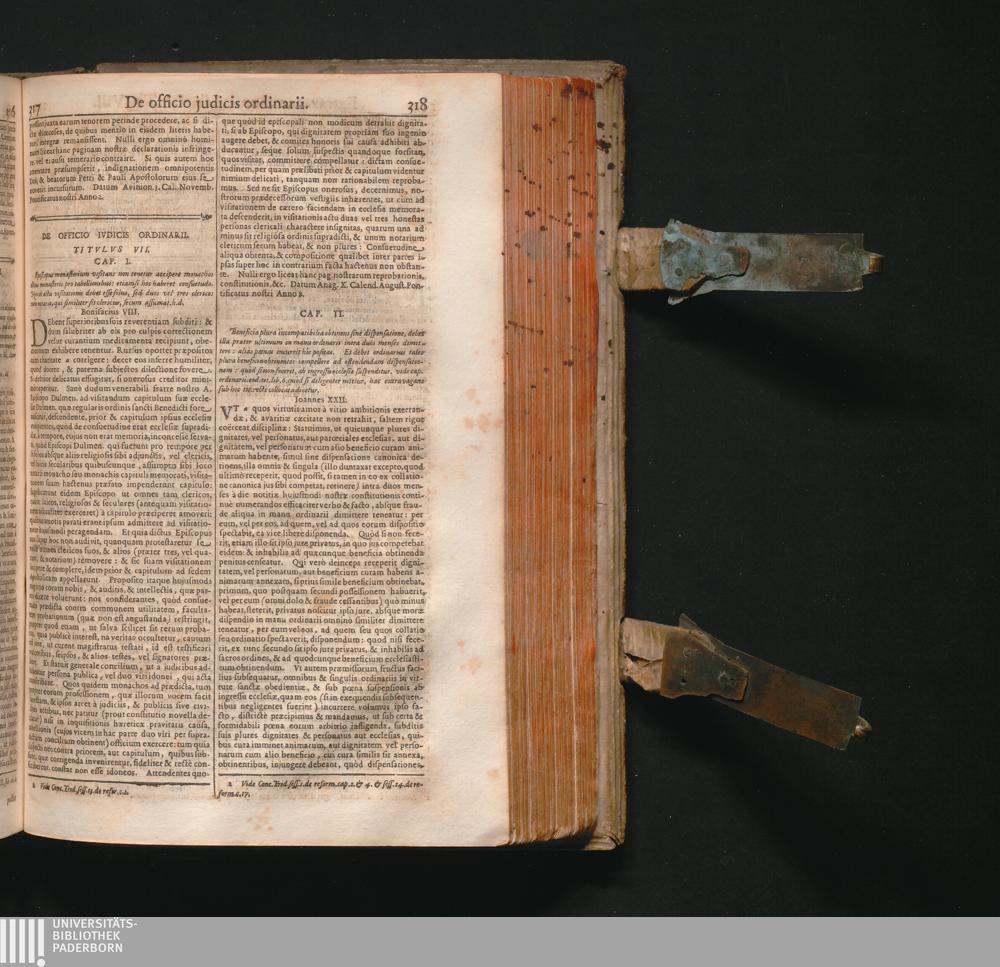 217
De officio judicis ordinarii.
318
possint juxta earum tenorem perinde procedere, ac si di-
diœceses, de quibus mentio in eisdem literis habe-
integræ remansissent. Nulli ergo omninò homi-
num liceat hanc paginam nostræ declarationis infringe-
re, vel ei ausu temerario contraire. Si quis autem hoc
præsumpserit, indignationem omnipotentis
Dei, & beatorum Petri & Pauli Apostolorum ejus se
noverit incursurum. Datum Avinion. 3. Cal. Novemb.
Pontificatus nostri Anno 2.
DE OFFICIO IVDICIS ORDINARII.
TITVLVS VII.
CAP. I.
Episcopus monasterium visitans non tenetur accipere monachos
illius monasterii pro tabellionibus: etiamsi hoc haberet consuetudo.
sed duos vel tres clericos
secum assumat. h.d.
Bonifacius VIII.
DEbent superioribus suis reverentiam subditi: &
dum salubriter ab eis pro culpis correctionem
velut curantium medicamenta recipiunt, obe-
dientiam exhibere tenentur. Rursus oportet præpositos
cum charitate a corrigere: decet eos inferre humiliter,
quod docere, & paterna subjectos dilectione fovere,
si onerosus creditor mini-
Sanè dudum venerabili fratre nostro A.
Episcopo Dulmen. ad visitandum capitulum suæ eccle-
siæ Dulmen. quæ regularis ordinis sancti Benedicti fore
descendente, prior & capitulum ipsius ecclesiæ
quod de consuetudine erat ecclesiæ supradi-
tempore, cujus non erat memoria, inconcussè serva-
quòd Episcopi Dulmen. qui fuerunt pro tempore per
absque aliis religiosis sibi adjunctis, vel clericis,
secularibus quibuscunque, assumptis sibi loco
monacho seu monachis capituli memorati, visita-
tionem suam hactenus præfato impenderunt capitulo:
supplicarunt eidem Episcopo ut omnes tam clericos,
quàm laicos, religiosos & seculares (antequam visitatio-
exerceret) à capitulo præciperet amoveri:
parati erant ipsum admittere ad visitatio-
nem hujusmodi peragendam. Et quia dictus Episcopus
hoc non audivit, quanquam protestaretur se
clericos suos, & alios (præter tres, vel qua-
tuor, & notarium) removere: & sic suam visitationem
& complere, idem prior & capitulum ad sedem
apostolicam appellarunt. Proposito itaque hujusmodi
coram nobis, & auditis, & intellectis, quæ par-
tes dicere voluerunt: nos considerantes, quòd consue-
tudo prædicta contra communem utilitatem, faculta-
tem probationum (quæ non est angustanda) restringit,
propter quod etiam, ut salva scilicet sit rerum proba-
tio, quia publicè interest, na veritas occultetur, cautum
ut curent magistratus testari, id est testificari
seipsos, & alios testes, vel signatores præ-
Et statuit generale concilium, ut à judicibus ad-
persona publica, vel duo viri idonei, qui acta
conscribant. Quos quidem monachos ad prædicta, tum
propter eorum professionem, quæ illorum vocem facit
& ipsos arcet à judiciis, & publicis sive civi-
libus actibus, nec patitur (prout constitutio novella de-
nisi in inquisitionis hæreticæ pravitatis causa,
(cujus vicem in hac parte duo viri per supra-
dictum concilium obtinent) officium exercere: tum quia
contra priorem, aut capitulum, quibus sub-
quæ corrigenda invenirentur, fideliter & rectè con-
constat non esse idoneos. Attendentes quo-
a Vide Conc. Trid. sess. 13. de refor. c. 1.
que quòd id episcopali non modicum detrahit dignita-
ti, si ab Episcopo, qui dignitatem propriam suo ingenio
augere debet, & comites honoris sui causâ adhibiti ab-
ducantur, seque solum suspectis quandoque forsitan,
quos visitat, committere compellatur: dictam consue-
tudinem, per quam præfati prior & capitulum videntur
nimium delicati, tanquam non rationabilem reproba-
mus. Sed ne sit Episcopus onerosus, decernimus, no-
strorum prædecessorum vestigiis inhærentes, ut cum ad
visitationem de cætero faciendam in ecclesia memora-
ta descenderit, in visitationis actu duas vel tres honestas
personas clericali charactere insignitas, quarum una ad
minus sit religiosa ordinis supradicti, & unum notarium
clericum secum habeat, & non plures: Consuetudine
aliqua obtenta, & compositione qualibet inter partes i-
psas super hoc in contrarium facta hactenus non obstan-
te. Nulli ergo liceat hanc pag. nostrarum reprobationis,
constitutionis, &c. Datum Anag. X. Calend. August. Pon-
tificatus nostri Anno 8.
CAP. II.
Beneficia plura incompatibilia obtinens sine dispensatione, debet
illa præter ultimum in manu ordinarii intra duos menses dimit-
tere: alias pœnas incurrit hic positas. Et debet ordinarius tales
plura beneficia obtinentes compellere ad ostendendum dispensatio-
nem: quòd si non fecerit, ab ingressu ecclesiæ suspenditur. vide cap.
sub hoc
Joannes XXII.
VT a quos virtutis amor à vitio ambitionis execran-
dæ, & avaritiæ cæcitate non retrahit, saltem rigor
coërceat disciplinæ: Statuimus, ut quicunque plures di-
gnitates, vel personatus, aut parœciales ecclesias, aut di-
gnitatem, vel personatum cum alio beneficio curam ani-
marum habente, simul sine dispensatione canonica de-
tinens, illa omnia & singula (illo duntaxat excepto, quod
ultimò receperit, quod possit, si tamen in eo ex collatio-
ne canonica jus sibi competat, retinere) intra duos men-
ses à die notitiæ hujusmodi nostræ constitutionis conti-
nuè numerandos efficaciter verbo & facto, absque frau-
de aliqua in manu ordinarii dimittere teneatur: per
eum, vel per eos, ad quem, vel ad quos eorum dispositio
spectabit, ea vice liberè disponenda. Quòd si non fece-
rit, etiam illo sit ipso jure privatus, in quo jus competebat
eidem: & inhabilis ad quæcunque beneficia obtinenda
penitus censeatur. Qui verò deinceps receperit digni-
tatem, vel personatum, aut beneficium curam habens a-
nimarum annexam, si prius simile beneficium obtinebat,
primum, quo postquam secundi possessionem habuerit,
vel per eum (omni dolo & fraude cessantibus) quò minus
habeat, steterit, privatus noscitur ipso jure, absque moræ
dispendio in manu ordinarii omninò similiter dimittere
teneatur, per eum vel eos, ad quem seu quos collatio
seu ordinatio spectaverit, disponendum: quod nisi fece-
rit, ex tunc secundo sit ipso jure privatus, & inhabilis ad
sacros ordines, & ad quodcunque beneficium ecclesiasti-
cum obtinendum. Vt autem præmissorum fructus faci-
lius subsequatur, omnibus & singulis ordinariis in vir-
tute sanctæ obedientiæ, & sub pœna suspensionis ab
ingressu ecclesiæ, quam eos (si in exequendis subsequen-
tibus negligentes fuerint) incurrere volumus ipso fa-
cto, districtè præcipimus & mandamus, ut sub certa &
formidabili pœna eorum arbitrio infligenda, subditis
suis plures dignitates & personatus aut ecclesias, qui-
bus cura imminet animarum, aut dignitatem vel perso-
natum cum alio beneficio, cui cura similis sit annexa,
obtinentibus, injungere debeant, quòd dispensationes,
a Vide Conc. Trid. sess. 7. de reform. cap. 2. & 4. & sess. 24. de re-
form. c. 17.
UNIVERSITÄTS-
BIBLIOTHEK
PADERBORN